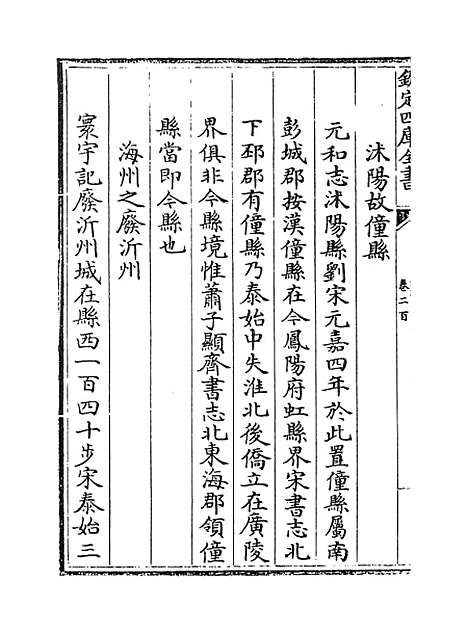 欽定四庫全書
卷二百
沭陽故僮縣
元和志沭陽縣劉宋元嘉四年於此置僮縣屬南
彭城郡按漢僮縣在今鳳陽府虹縣界宋書志北
下邳郡有僮縣乃泰始中失淮北後僑立在廣陵
界俱非今縣境惟蕭子顯齊書志北東海郡領僮
縣當即今縣也
海州之廢沂州
寰宇記廢沂州城在縣西一百四十步宋泰始三